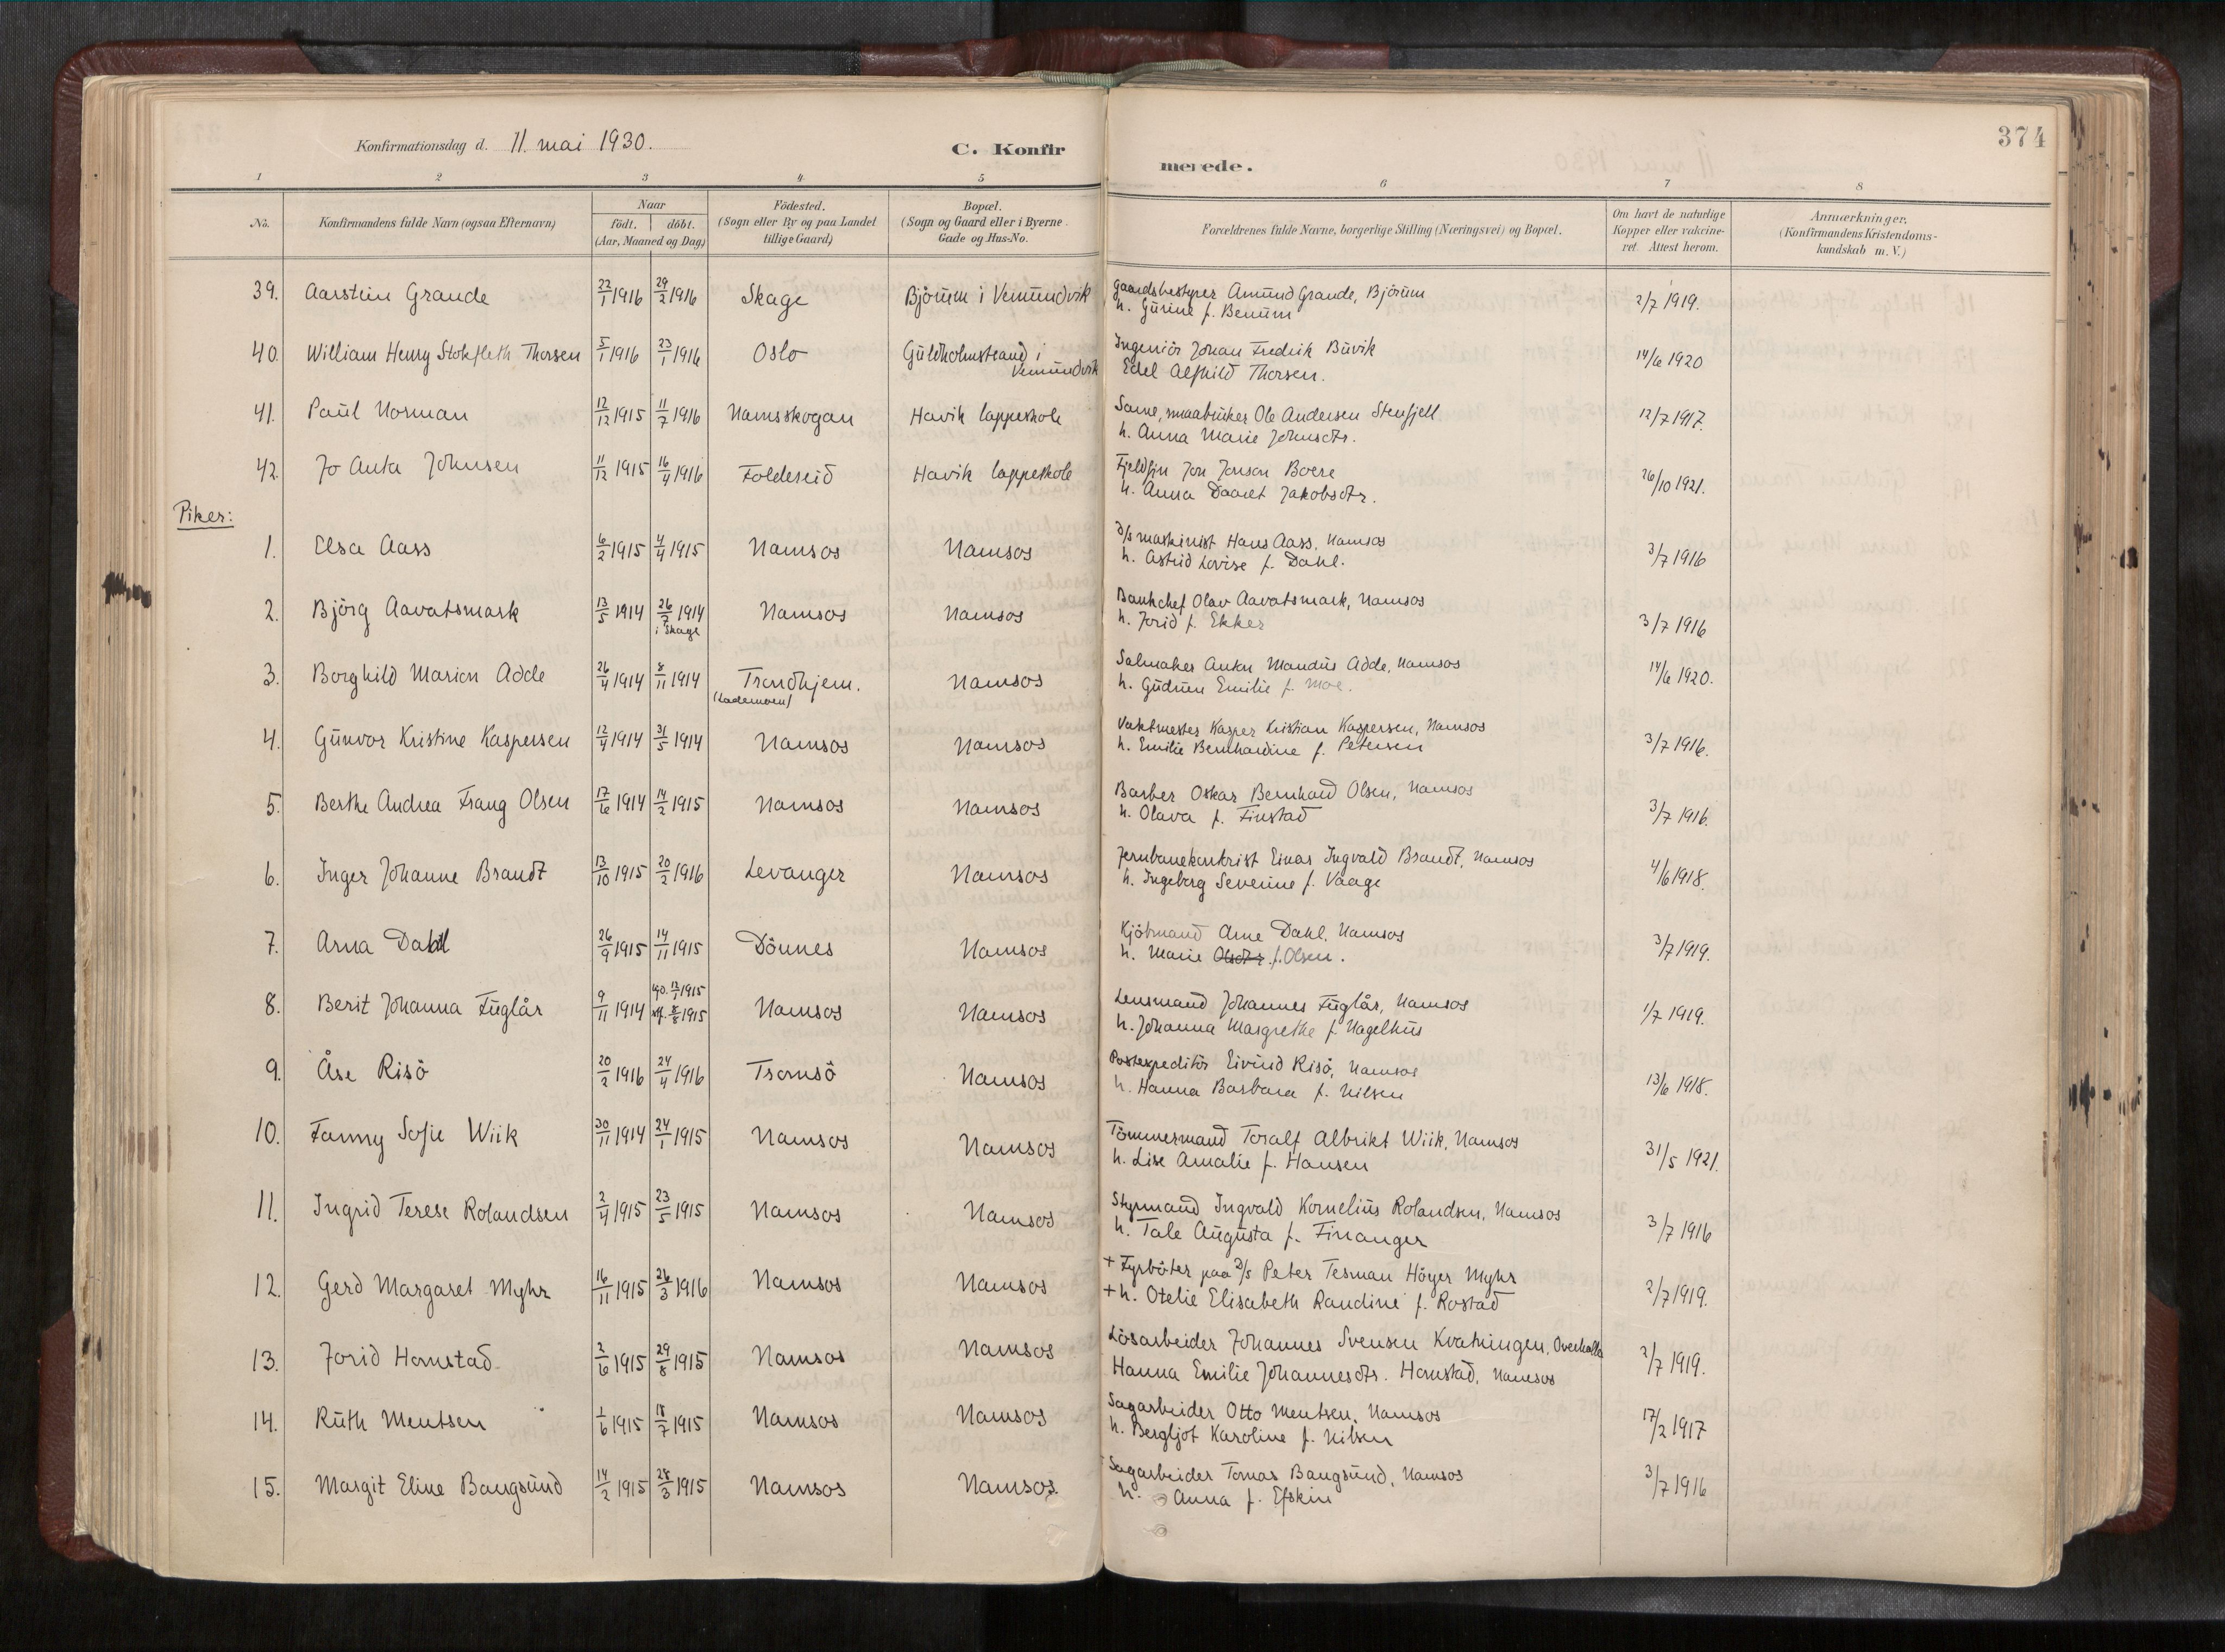 374
Konfirmationsdag d. 11. mai 1930.
C. Konfirmerede.
1 2 3 4 5 6 7 8
No. | Konfirmandens fulde Navn (ogsaa Efternavn) | Naar födt. | döbt. (Aar, Maaned og Dag) | Födested. (Sogn eller By og paa Landet tillige Gaard) | Bopæl. (Sogn og Gaard eller i Byerne Gade og Hus-No. | Forældrenes fulde Navne, borgerlige Stilling (Næringsvei) og Bopæl. | Om havt de naturlige Kopper eller vakcineret. Attest herom. | Anmærkninger. (Konfirmandens Kristendomskundskab m. V.)
39. Aarstein Grande 22/1 1916 29/2 1916 Skage Bjørum i Vemundvik Gaardsbestyrer Amund Grande, Bjørum 2/7 1919.
h. Gurine f. Benum
40. William Henry Stokfleth Thorsen 5/1 1916 23/1 1916 Oslo Guldholmstrand i Vemundvik Ingeniör Johan Fredrik Buvik 14/6 1920
Edel Alfhild Thorsen.
41. Paul Norman 12/12 1915 11/7 1916 Namsskogan Havik lappeskole Same, smaabruker Ole Andersen Stenfjell 12/7 1917.
h. Anna Marie Johnsdtr.
42. Jo Anta Johnsen 11/12 1915 16/4 1916 Foldereid Havik lappeskole Fjeldfin Jon Jonson Boere 26/10 1921.
h. Anna Daaret Jakobsdtr.
Piker:
1. Elsa Aass 6/2 1915 4/4 1915 Namsos Namsos d/s maskinist Hans Aass, Namsos 3/7 1916
h. Astrid Lovise f. Dahl.
2. Björg Aavatsmark 13/5 1914 26/7 1914 i Skage Namsos Namsos Bankchef Olav Aavatsmark, Namsos 3/7 1916
h. Jorid f. Ekker
3. Borghild Marion Adde 26/4 1914 8/11 1914 Trondhjem. (Lademoen) Namsos Salmaker Anton Mandus Adde, Namsos 14/6 1920.
h. Gudrun Emilie f. Moe.
4. Gunvor Kristine Kaspersen 12/4 1914 31/5 1914 Namsos Namsos Vaktmester Kasper Kristian Kaspersen, Namsos 3/7 1916.
h. Emilie Bernhardine f. Petersen
5. Berthe Andrea Frang Olsen 17/6 1914 14/2 1915 Namsos Namsos Barber Oskar Bernhard Olsen, Namsos 3/7 1916.
h. Olava f. Finstad
6. Inger Johanne Brandt 13/10 1915 20/2 1916 Levanger Namsos Jernbanekontorist Einar Ingvald Brandt, Namsos 4/6 1918.
h. Ingeborg Severine f. Vaage
7. Arna Dahl 26/9 1915 14/11 1915 Dönnes Namsos Kjöbmand Arne Dahl, Namsos 3/7 1919.
h. Marie Olsdtr. f. Olsen.
8. Berit Johanna Fuglår 9/11 1914 13/1 1915 8/8 1915 Namsos Namsos Lensmand Johannes Fuglår, Namsos 1/7 1919.
h. Johanna Margrethe f. Hagelhus
9. Åse Risö 20/2 1916 24/4 1916 Tromsö Namsos Postexpeditör Eivind Risö, Namsos 13/6 1918.
h. Hanna Barbara f. Nilsen
10. Fanny Sofie Wiik 30/11 1914 24/1 1915 Namsos Namsos Tömmermand Toralf Albrikt Wiik, Namsos 31/5 1921.
h. Lise Amalie f. Hansen
11. Ingrid Terese Rolandsen 2/4 1915 23/5 1915 Namsos Namsos Styrmand Ingvald Kornelius Rolandsen, Namsos 3/7 1916
h. Tale Augusta f. Finanger
12. Gerd Margaret Myhr 16/11 1915 26/3 1916 Namsos Namsos + Fyrböter paa D/s Peter Tesman Höyer Myhr 2/7 1919.
+ h. Otelie Elisabeth Randine f. Rostad
13. Jorid Homstad 2/6 1915 29/8 1915 Namsos Namsos Lösarbeider Johannes Svensen Kvatningen, Overhalla 2/7 1919.
Hanna Emilie Johannesdtr. Homstad, Namsos
14. Ruth Mentsen 1/6 1915 18/7 1915 Namsos Namsos Sagarbeider Otto Mentsen, Namsos 17/2 1917
h. Bergljot Karoline f. Nilsen
15. Margit Eline Bangsund 14/2 1915 28/3 1915 Namsos Namsos Sagarbeider Tomas Bangsund, Namsos 3/7 1916
h. Anna f. Efskin